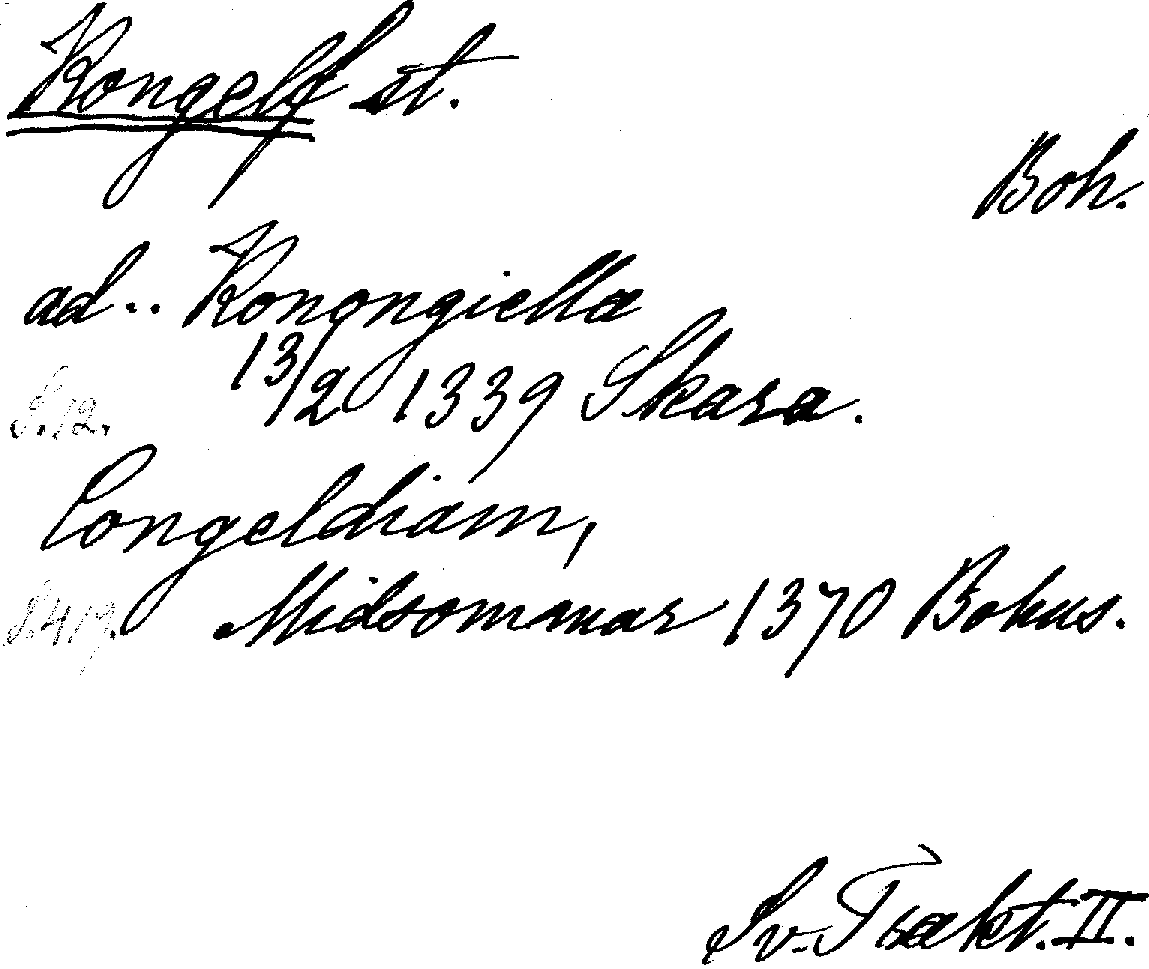 Kongelf st.
Boh.
ad.. Konongiella
13/2 1339 Skara.
S. 12.
Congeldiam,
S. 419. Midsommar 1370 Bohus.
Sv. Trakt. II.